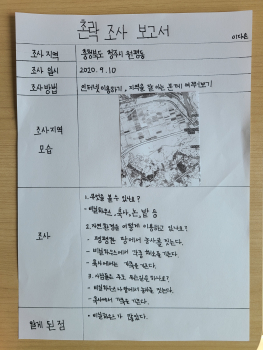 촌락 조사 보고서
이다은
조사 지역
충청북도 청주시 원평동
조사 일시
2020. 9. 10
조사 방법
인터넷 이용하기, 지역을 잘 아는 분께 여쭈어보기
조사 지역
모습
조사
1. 무엇을 볼 수 있나요?
- 비닐하우스, 축사, 논, 밭 등
2. 자연환경을 어떻게 이용하고 있나요?
- 평평한 땅에서 농사를 짓는다.
- 비닐하우스에서 각종 채소를 기른다.
- 축사에서는 가축을 기른다.
3. 사람들은 주로 무슨 일을 하나요?
- 비닐하우스나 밭에서 농사를 짓는다.
- 축사에서 가축을 기른다.
알게 된 점
• 비닐하우스가 많았다.